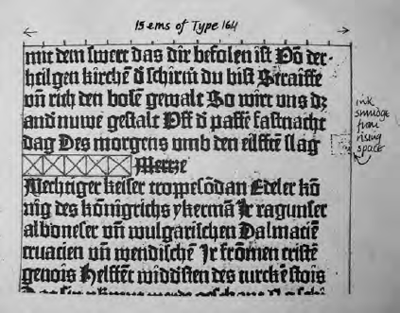 15 ems of Type 164
mit dem swert das dir befolen ist Võ der-
heilgen kirchẽ d̃ schirm̃ du bist Straiffe
vñ rich den bose gewalt So wirt vns dz
and nuwe gestalt Vff d̃ paffẽ fastnacht
dag Des morgens vmb den eilfftẽ slag
Mertze
Mechtiger keiser troppesõdan Edeler kõ
nig des kõnigrichs ykermã Ir ragunser
alboneser vñ wulgarischen Dalmaciẽ
cruacien vñ wendischẽ Ir frõmen cristẽ
genois Helffẽt widdisten des turckẽ stois
ink
smudge
from
rising
space